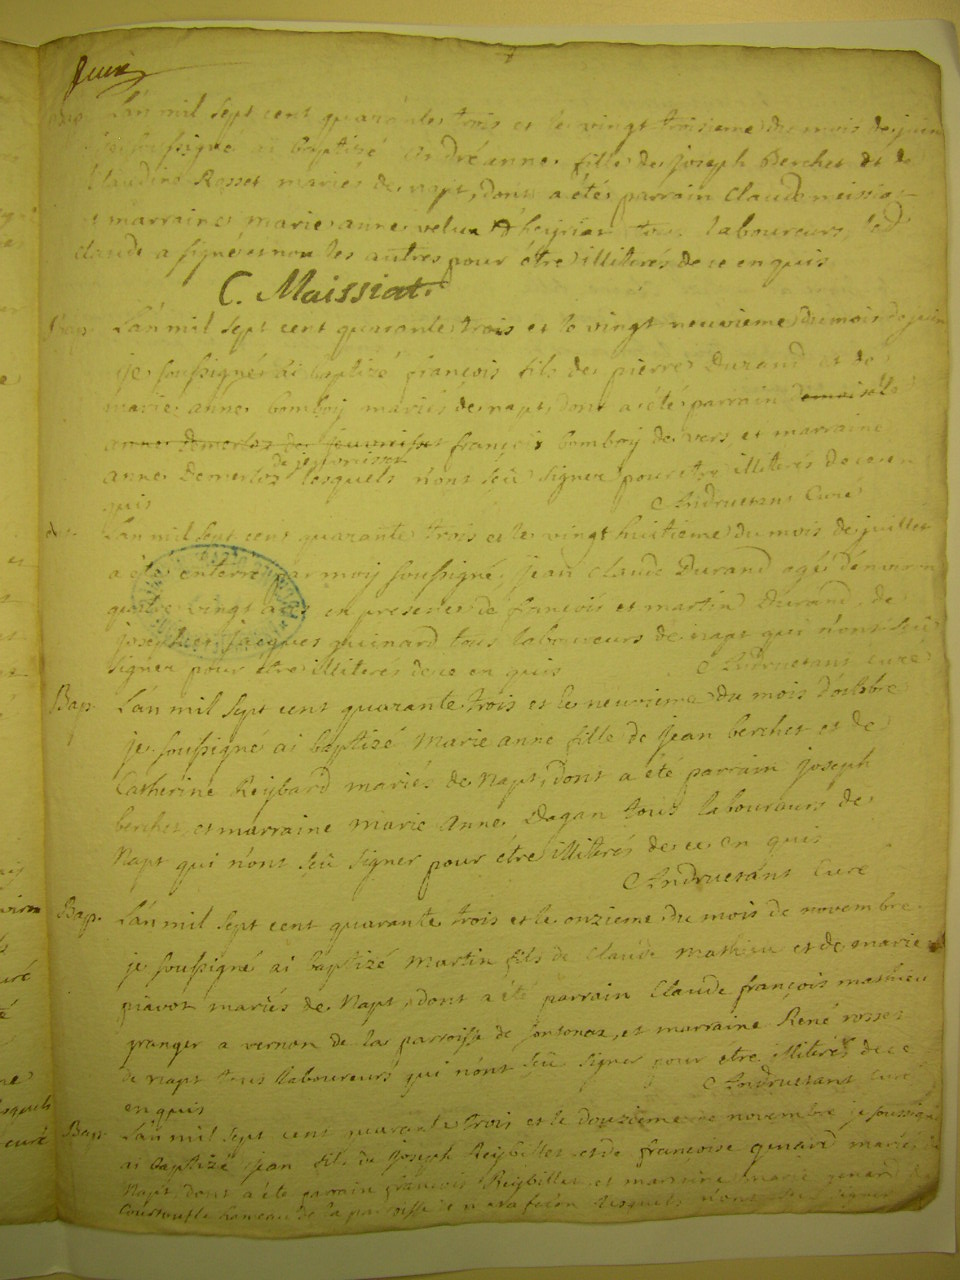 Juin
Bap. L'an mil sept cent quarante trois et le vingt troisieme du mois de juin
je soussigné ai baptizé andréanne fille de joseph Berchet et de
Claudine Rosset mariés de napt, dont a été parrain Claude meissiat
et marraine marie anne velux d'heyriat tous laboureurs, led
claude a signé et non les autres pour étre illiterés de ce enquis
C. Maissiat.
Bap. L'an mil sept cent quarante trois et le vingt neuvieme du mois de juin
je soussigné ai baptizé françois fils de pierre Durand et de
marie anne bomboy mariés de napt, dont a été parrain demoiselle
anne Demerloz de jeuvrisset françois bomboy de vers, et marraine
de jeuvrisset
anne Demerloz lesquels n'ont sçû signer pour etre illiterés de ce en
quis Andruesans Curé
L'an mil sept cent quarante trois et le vingt huitieme du mois de juillet
a été enterré par moy soussigné, jean claude Durand agé d'environ
quatre vingt ans en presence de françois et martin Durand, de
joseph et jacques guinard tous laboureurs de napt qui n'ont sçû
signer pour etre illiterés de ce en quis Andruesans Curé
Bap. L'an mil sept cent quarante trois et le neuvieme du mois d'octobre
je soussigné ai baptizé Marie anne fille de jean berchet et de
Catherine Reybard mariés de Napt, dont a été parrain joseph
berchet, et marraine marie Anne Dagan tous laboureurs de
Napt qui n'ont sçû signer pour etre illiterés de ce en quis
Andruesans Curé
Bap. L'an mil sept cent quarante trois et le onzieme du mois de novembre
je soussigné ai baptizé Martin fils de Claude mathieu et de marie
piavot mariés de Napt, dont a été parrain Claude françois mathieu
granger a vernon de la parroisse de sontonaz, et marraine René rosset
de napt tous laboureurs qui n'ont sçû signer pour etre illiterés de ce
enquis Andruesans Curé
Bap. L'an mil sept cent quarante trois et le douzieme de novembre je soussigné
ai baptizé jean fils de joseph Reybillet et de francoise guinard mariés de
Napt, dont a été parrain françois Reybillet et marraine marie guinard de
hameau de la parroisse lesquels n'ont sçû signer